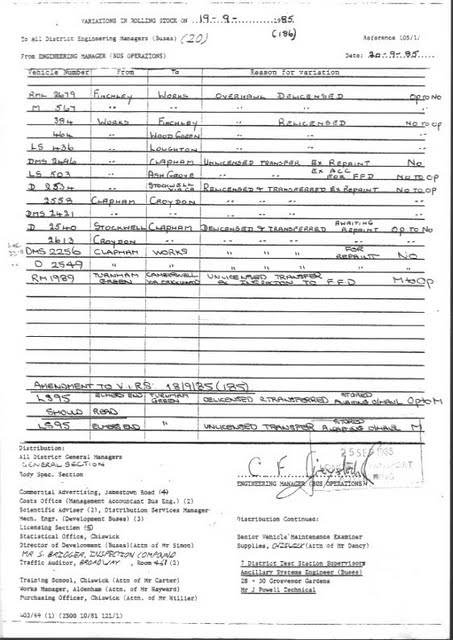 VARIATIONS IN ROLLING STOCK ON 19-9-1985
(186)
To all District Engineering Managers (Buses) (20) Reference 105/1/
From ENGINEERING MANAGER (BUS OPERATIONS) Date: 20-9-85
Vehicle Number From To Reason for variation
RML 2679 FINCHLEY WORKS OVERHAUL DELICENSED Op to No
M 567 " " " " "
394 WORKS FINCHLEY " RELICENSED No to Op
464 " WOOD GREEN " " "
LS 436 " LOUGHTON " " "
DMS 2496 " CLAPHAM UNLICENSED TRANSFER EX REPAINT No
LS 503 " ASH GROVE " " EX ACC FOR FFD No to Op
D 2534 " STOCKWELL VIA CA RELICENSED & TRANSFERRED EX REPAINT No to Op
2558 CLAPHAM CROYDON " " "
DMS 2421 " " " " "
D 2540 STOCKWELL CLAPHAM DELICENSED & TRANSFERRED AWAITING REPAINT Op to No
2613 CROYDON " " " " "
DMS 2256 CLAPHAM WORKS " " FOR REPAINT No
D 2549 " " " " "
RM 1989 TURNHAM GREEN CAMBERWELL UNLICENSED TRANSFER & INSPECTION TO F.F.D M to Op
AMENDMENT TO V.I.R.S. 18/9/85 (185)
LS95 ELMERS END TURNHAM GREEN DELICENSED & TRANSFERRED STORED AWAITING O/HAUL Op to M
SHOULD READ
LS95 ELMERS END " UNLICENSED TRANSFER STORED AWAITING O/HAUL M
25 SEP 1985
Distribution:
All District General Managers
GENERAL SECTION
Body Spec. Section
ENGINEERING MANAGER (BUS OPERATIONS)
Commercial Advertising, Jamestown Road (4)
Costs Office (Management Accountant Bus Eng.) (2)
Scientific Adviser (2), Distribution Services Manager
Mech. Engr. (Development Buses) (3)
Licensing Section (5)
Statistical Office, Chiswick
Director of Development (Buses)(Attn of Mr Simon)
MR S. BRIDGER, INSPECTION COMPOUND
Traffic Auditor, BROADWAY, Room 461 (2)
Training School, Chiswick (Attn of Mr Carter)
Works Manager, Aldenham (Attn of Mr Hayward)
Purchasing Officer, Chiswick (Attn of Mr Hillier)
Distribution Continued:
Senior Vehicle Maintenance Examiner
Supplies, CHISWICK (Attn of Mr Dancy)
7 District Test Station Supervisors
Ancillary Systems Engineer (Buses)
28 - 30 Grosvenor Gardens
Mr J Powell Technical
403/64 (1) (2500 10/81 121/1)